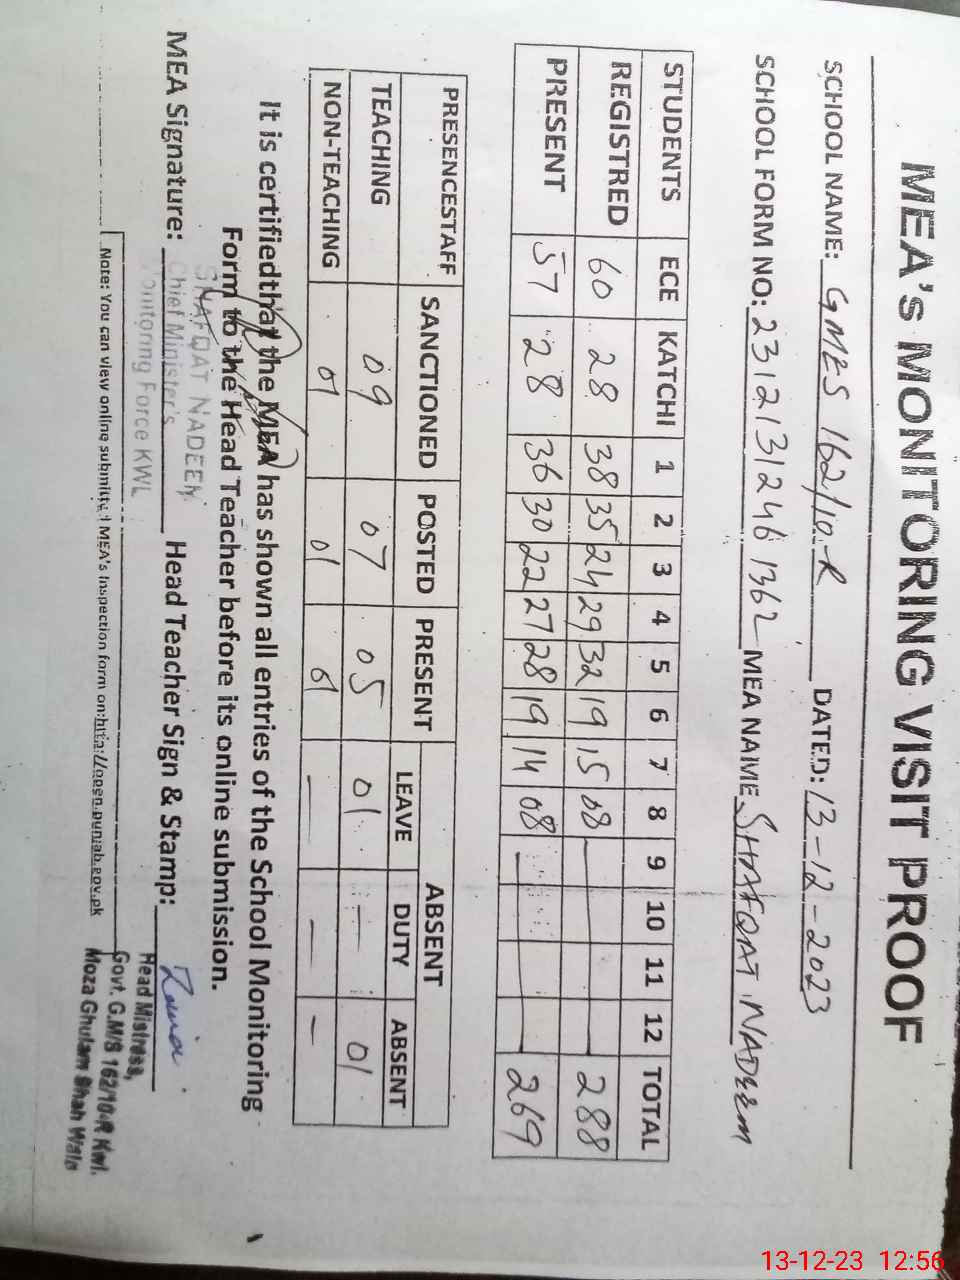 MEA's MONITORING VISIT PROOF
SCHOOL NAME: GMES 162/10-R DATED: 13-12-2023
SCHOOL FORM NO: 23121312461362 MEA NAME SHAFQAT NADEEM
STUDENTS ECE KATCHI 1 2 3 4 5 6 7 8 9 10 11 12 TOTAL
REGISTRED 60 28 38 35 24 29 32 19 15 08 — — — — 288
PRESENT 57 28 36 30 22 27 28 19 14 08 — — — — 269
PRESENCESTAFF SANCTIONED POSTED PRESENT ABSENT
LEAVE DUTY ABSENT
TEACHING 09 07 05 01 — 01
NON-TEACHING 01 01 01 — — —
It is certifiedthat the MEA has shown all entries of the School Monitoring
Form to the Head Teacher before its online submission.
MEA Signature: Head Teacher Sign & Stamp:
SHAFQAT NADEEM
Chief Minister's
Monitoring Force KWL
Head Mistress,
Govt. G.M/S 162/10-R Kwl.
Moza Ghulam Shah Wala
Note: You can view online submitted MEA's Inspection form on:http://open.punjab.gov.pk
13-12-23 12:56